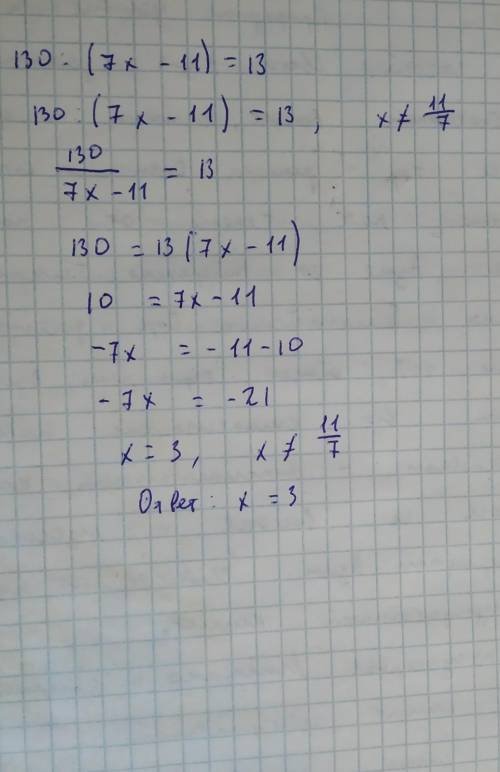 130 : (7x - 11) = 13
130 : (7x - 11) = 13, x ≠ 11/7
130/(7x - 11) = 13
130 = 13(7x - 11)
10 = 7x - 11
-7x = -11-10
-7x = -21
x = 3, x ≠ 11/7
Ответ: x = 3